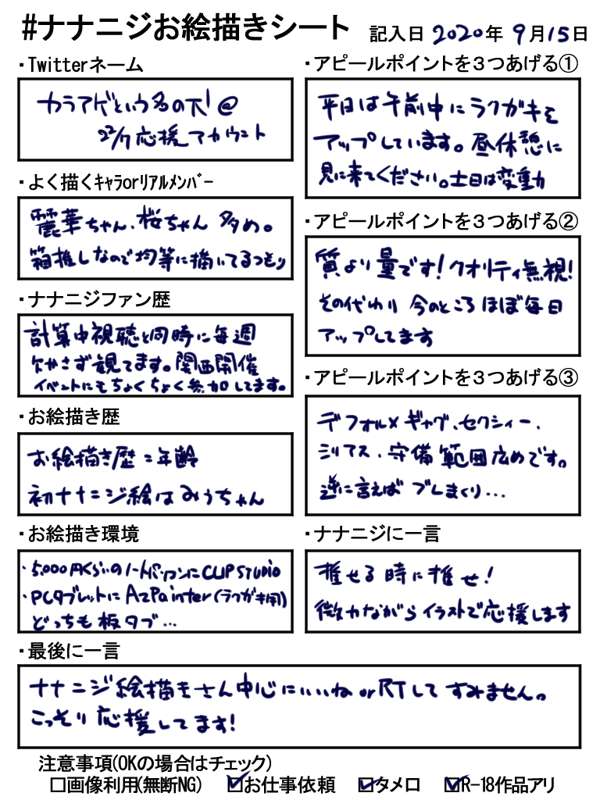 #ナナニジお絵描きシート 記入日 2020年 9月15日
・Twitterネーム
カラアゲという名の下!@
22/7応援アカウント
・よく描くｷｬﾗorﾘｱﾙﾒﾝﾊﾞｰ
麗華ちゃん、桜ちゃん多め。
箱推しなので均等に描いてるつもり
・ナナニジファン歴
計算中視聴と同時に毎週
欠かさず観てます。関西開催
イベントにもちょくちょく参加してます。
・お絵描き歴
お絵描き歴=年齢
初ナナニジ絵はみうちゃん
・お絵描き環境
・5,000円くらいのノートパソコンにCLIP STUDIO
・PCタブレットにAzPainter(ラクガキ用)
どっちも板タブ…
・アピールポイントを３つあげる①
平日は午前中にラクガキを
アップしています。昼休憩に
見に来てください。土日は変動
・アピールポイントを３つあげる②
質より量です!クオリティ無視!
その代わり 今のところほぼ毎日
アップしてます
・アピールポイントを３つあげる③
デフォルメ ギャグ、セクシィー、
シリアス、守備範囲広めです。
逆に言えば ブレまくり…
・ナナニジに一言
推せる時に推せ!
微力ながらイラストで応援します
・最後に一言
ナナニジ絵描きさん中心にいいねorRTしてすみません。
こっそり応援してます!
注意事項(OKの場合はチェック)
□画像利用(無断NG) ☑お仕事依頼 ☑タメロ ☑R-18作品アリ